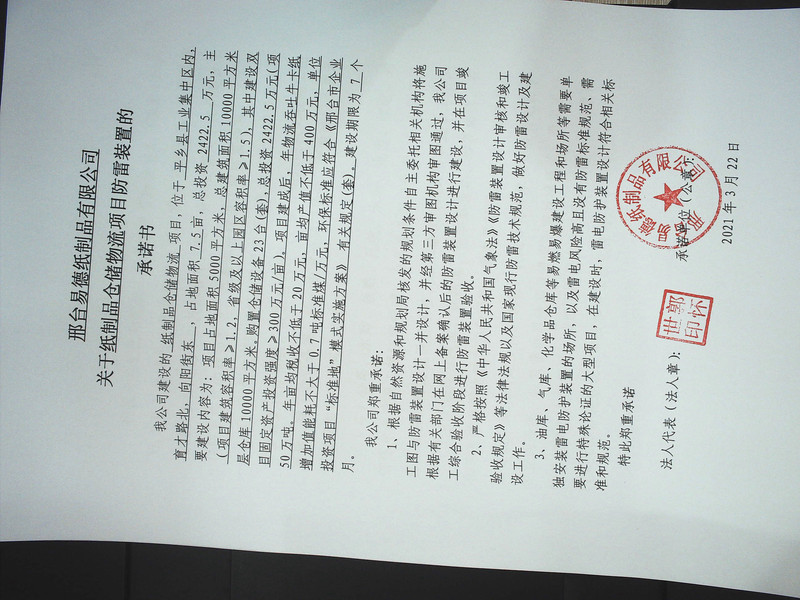 邢台易德纸制品有限公司
关于纸制品仓储物流项目防雷装置的
承诺书
我公司建设的 纸制品仓储物流 项目，位于 平乡县工业集中区内，
育才路北，向阳街东 ，占地面积 7.5亩，总投资 2422.5 万元，主
要建设内容为：项目占地面积 5000 平方米，总建筑面积 10000 平方米
（项目建筑容积率≥1.2，省级及以上园区容积率≥1.5），其中建设双
层仓库 10000 平方米。购置仓储设备 23 台(套)，总投资 2422.5 万元(项
目固定资产投资强度≥300 万元/亩)。项目建成后，年物流吞吐牛卡纸
50 万吨。年亩均税收不低于 20 万元，亩均产值不低于 400 万元，单位
增加值能耗不大于 0.7 吨标准煤/万元，环保标准应符合《邢台市企业
投资项目“标准地”模式实施方案》有关规定(套)。建设期限为 7 个
月。
我公司郑重承诺：
1、根据自然资源和规划局核发的规划条件自主委托相关机构将施
工图与防雷装置设计一并设计，并经第三方审图机构审图通过，我公司
根据有关部门在网上备案确认后的防雷装置设计进行建设，并在项目竣
工综合验收阶段进行防雷装置验收。
2、严格按照《中华人民共和国气象法》《防雷装置设计审核和竣工
验收规定》等法律法规以及国家现行防雷技术规范，做好防雷设计及建
设工作。
3、油库、气库、化学品仓库等易燃易爆建设工程和场所等需要单
独安装雷电防护装置的场所，以及雷电风险高且没有防雷标准规范、需
要进行特殊论证的大型项目，在建设时，雷电防护装置设计符合相关标
准和规范。
特此郑重承诺
法人代表（法人章）：
郭怀
世印
承诺单位（公章）：
2021年3月22日